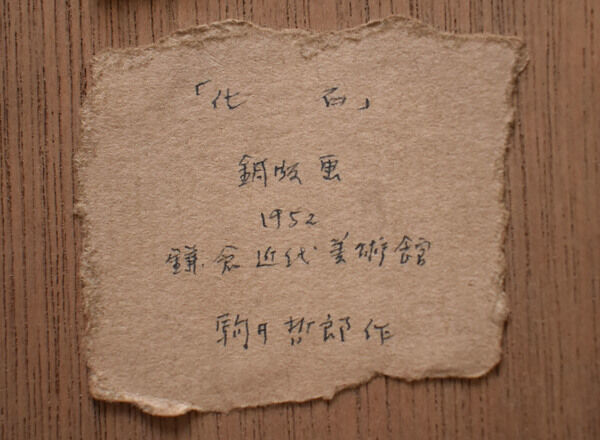 「化 石」
銅版画
1952
鎌倉近代美術館
駒井哲郎作